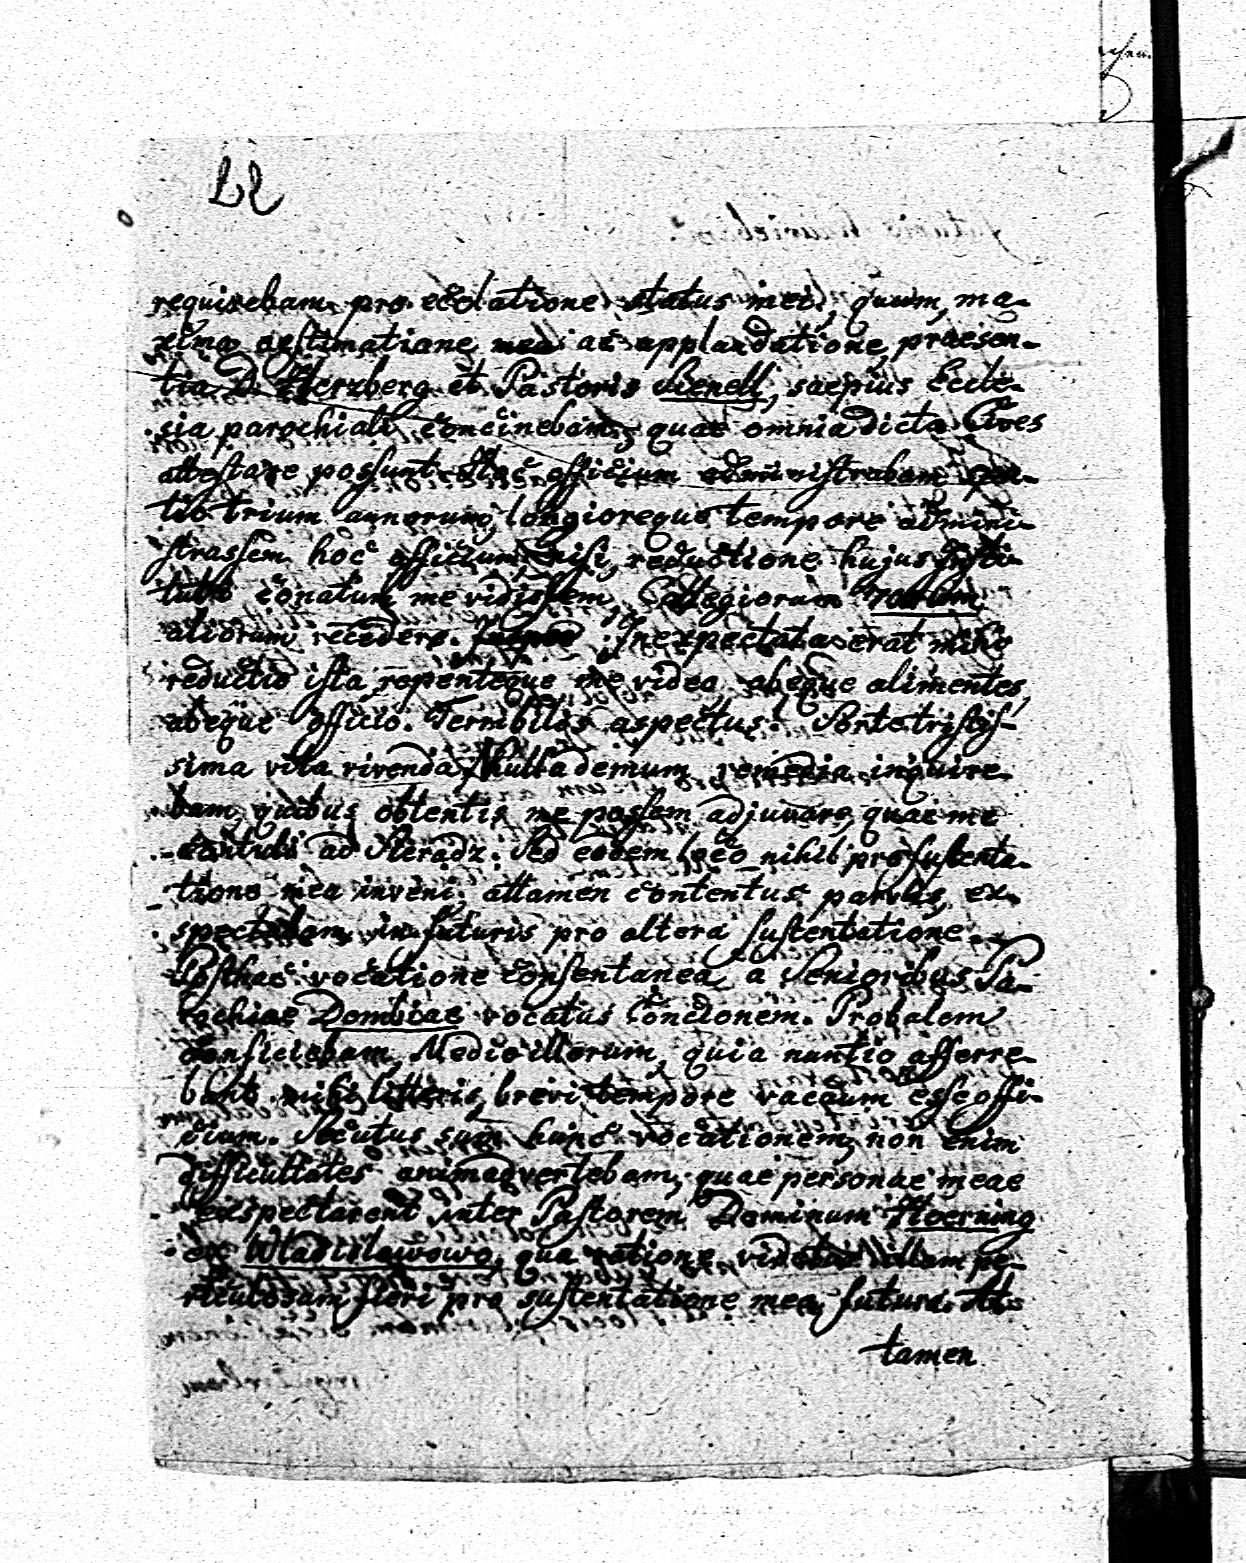 requirebam pro ecolatione status mei, quum, ma-
xima aestimatione, mea ac applaudatione, praesen-
tia D. Herzberg et Pastoris Benell, saepius Eccle-
sia parochiali concinebam, quae omnia dicta Cives
attestare possunt. Hoc officium administrabam spa-
tio trium annorum, longioreque tempore admini-
strassem hoc officium, nisi, reductione hujus Insti-
tuti conatum me vidissem, Collegiorum
aliorum recedere. Inexpectata erat mihi
reductio ista, repenteque me video absque alimentes,
abeque officio. Terribilis aspectus! Sorte tristis-
sima vita vivenda. Multa demum remedia inquire-
bam, quibus obtentis me possem adjuvare, quae me
contuli ad Sieradz. Sed eodem loco nihil pro sustenta-
tione mea inveni, attamen contentus parvis, ex-
spectabam in futuris pro altera sustentatione.
Posthac vocatione consentanea, a Senioribus Pa-
rochiae Dombiae vocatus Concionem. Probalem
conficiebam, Medio illorum, quia nuntio afferre-
bant mihi litteris, brevi tempore vacuum esse offi-
cium. Secutus sum hunc vocationem, non enim
difficultates animadvertebam, quae personae meae
exspectarent inter Pastorem Dominum Hoerning
ex Wladislawowo, qua ratione videbat illam pe-
riculosam fieri pro sustentatione mea futura. At-
tamen